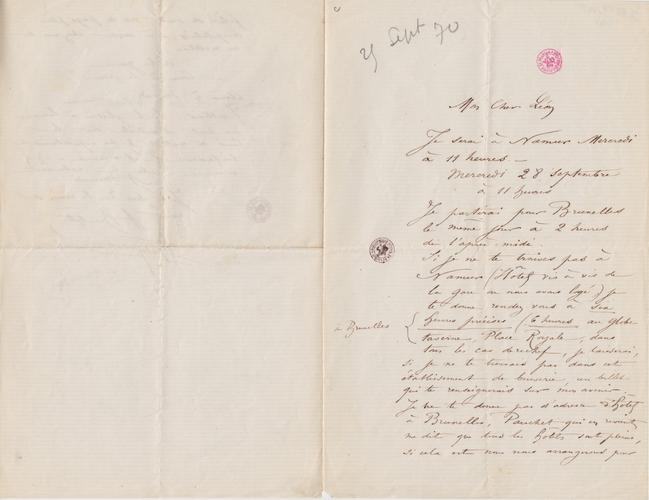 25 Sept 70
Mon Cher Léon
Je serai à Namur Mercredi
à 11 heures —
Mercredi 28 Septembre
à 11 heures
Je partirai pour Bruxelles
le même jour à 2 heures
de l'après-midi.
Si je ne te trouves pas à
Namur (Hôtel vis à vis de
la gare où nous avons logé) je
te donne rendez vous à Six
à Bruxelles { heures précises (6 heures au Globe
taverne, Place Royale, dans
tous les cas de rechef, je laisserai,
si je ne te trouvais pas dans cet
établissement de buverie, un billet
qui te renseignerais sur mon avenir.
Je ne te donne pas d'adresse d'hôtel
à Bruxelles, qui en revient,
me dit que tous les hôtels sont pleins,
si cela est nous nous arrangerons pour